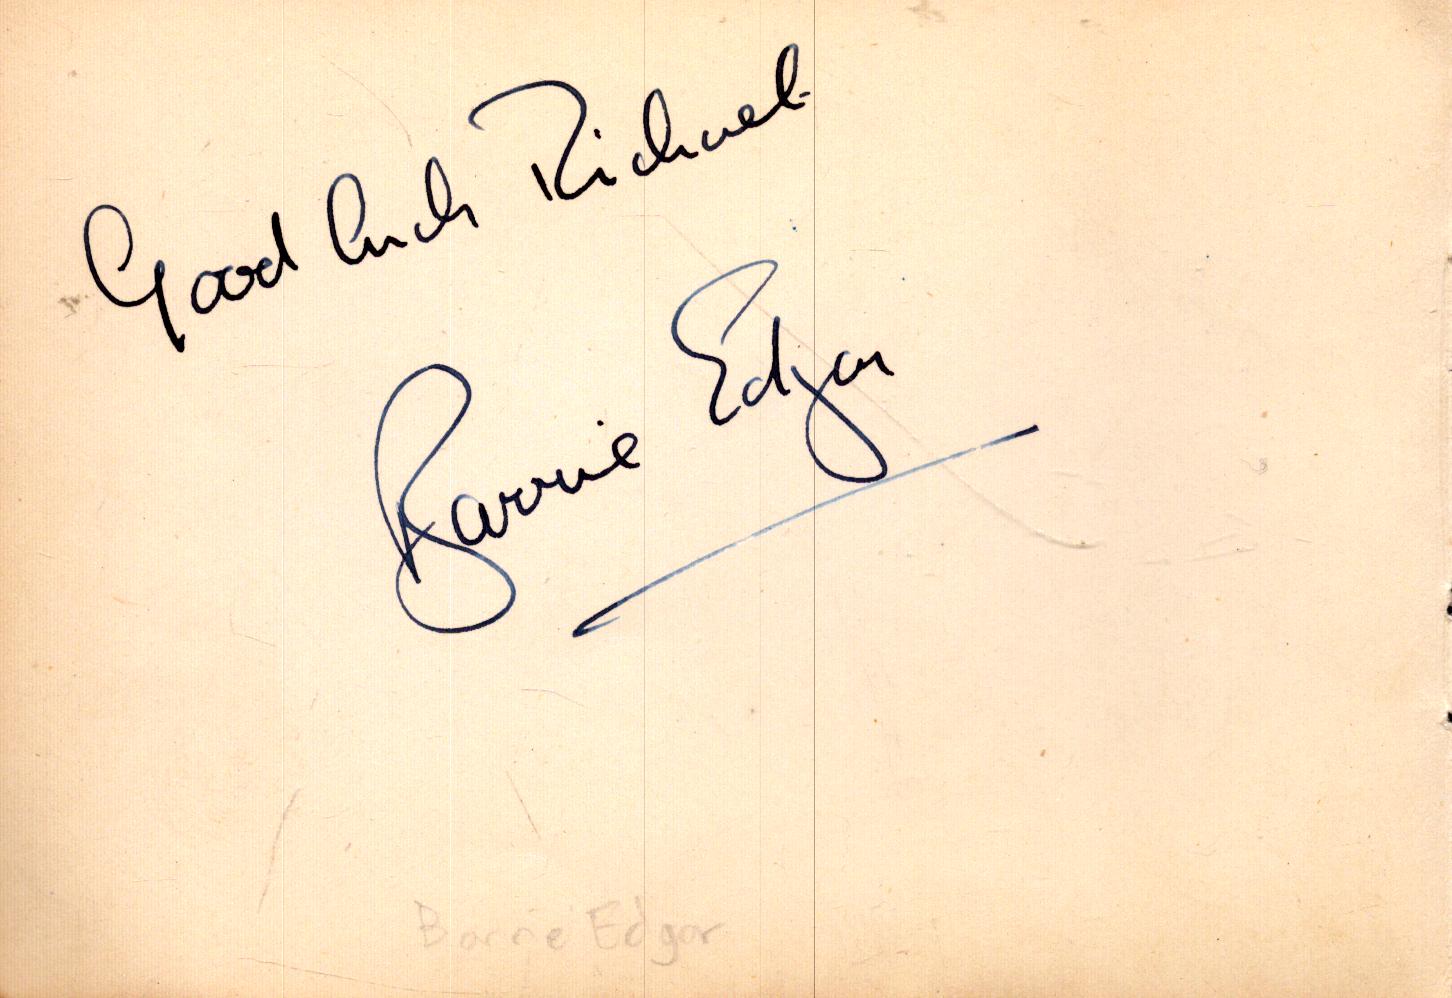 Good luck Richard
Barrie Edgar
Barrie Edgar